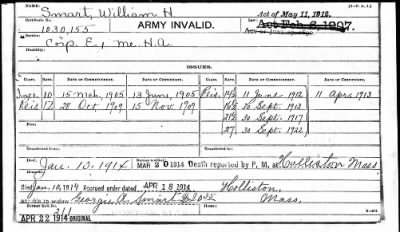 NAME:
Smart, William H
ARMY INVALID.
Act of May 11, 1912.
Act Feb. 6, 1907.
1030,155
Corp. E., 1 Me. H.A.
ISSUES.
CLASS. RATE. DATE OF COMMENCEMENT. DATE OF CERTIFICATE. CLASS. RATE. DATE OF COMMENCEMENT. DATE OF CERTIFICATE.
10 15 Mch, 1905 13 June, 1905 Reis. 11 June 1912 11 Apr 1913
Reis 12 28 Oct 1909 15 Nov 1909 30 Sept. 1913
30 Sept. 1917
27 30 Sept. 1922
Jan. 10. 1914 MAR 20 1914 Death reported by P. M. at Holliston Mass.
Died Jan. 10, 1914 Accrued ordered dated APR 18 1914 Holliston,
to widow Georgie A. Smart Mass.
APR 22 1914 ORIGINAL